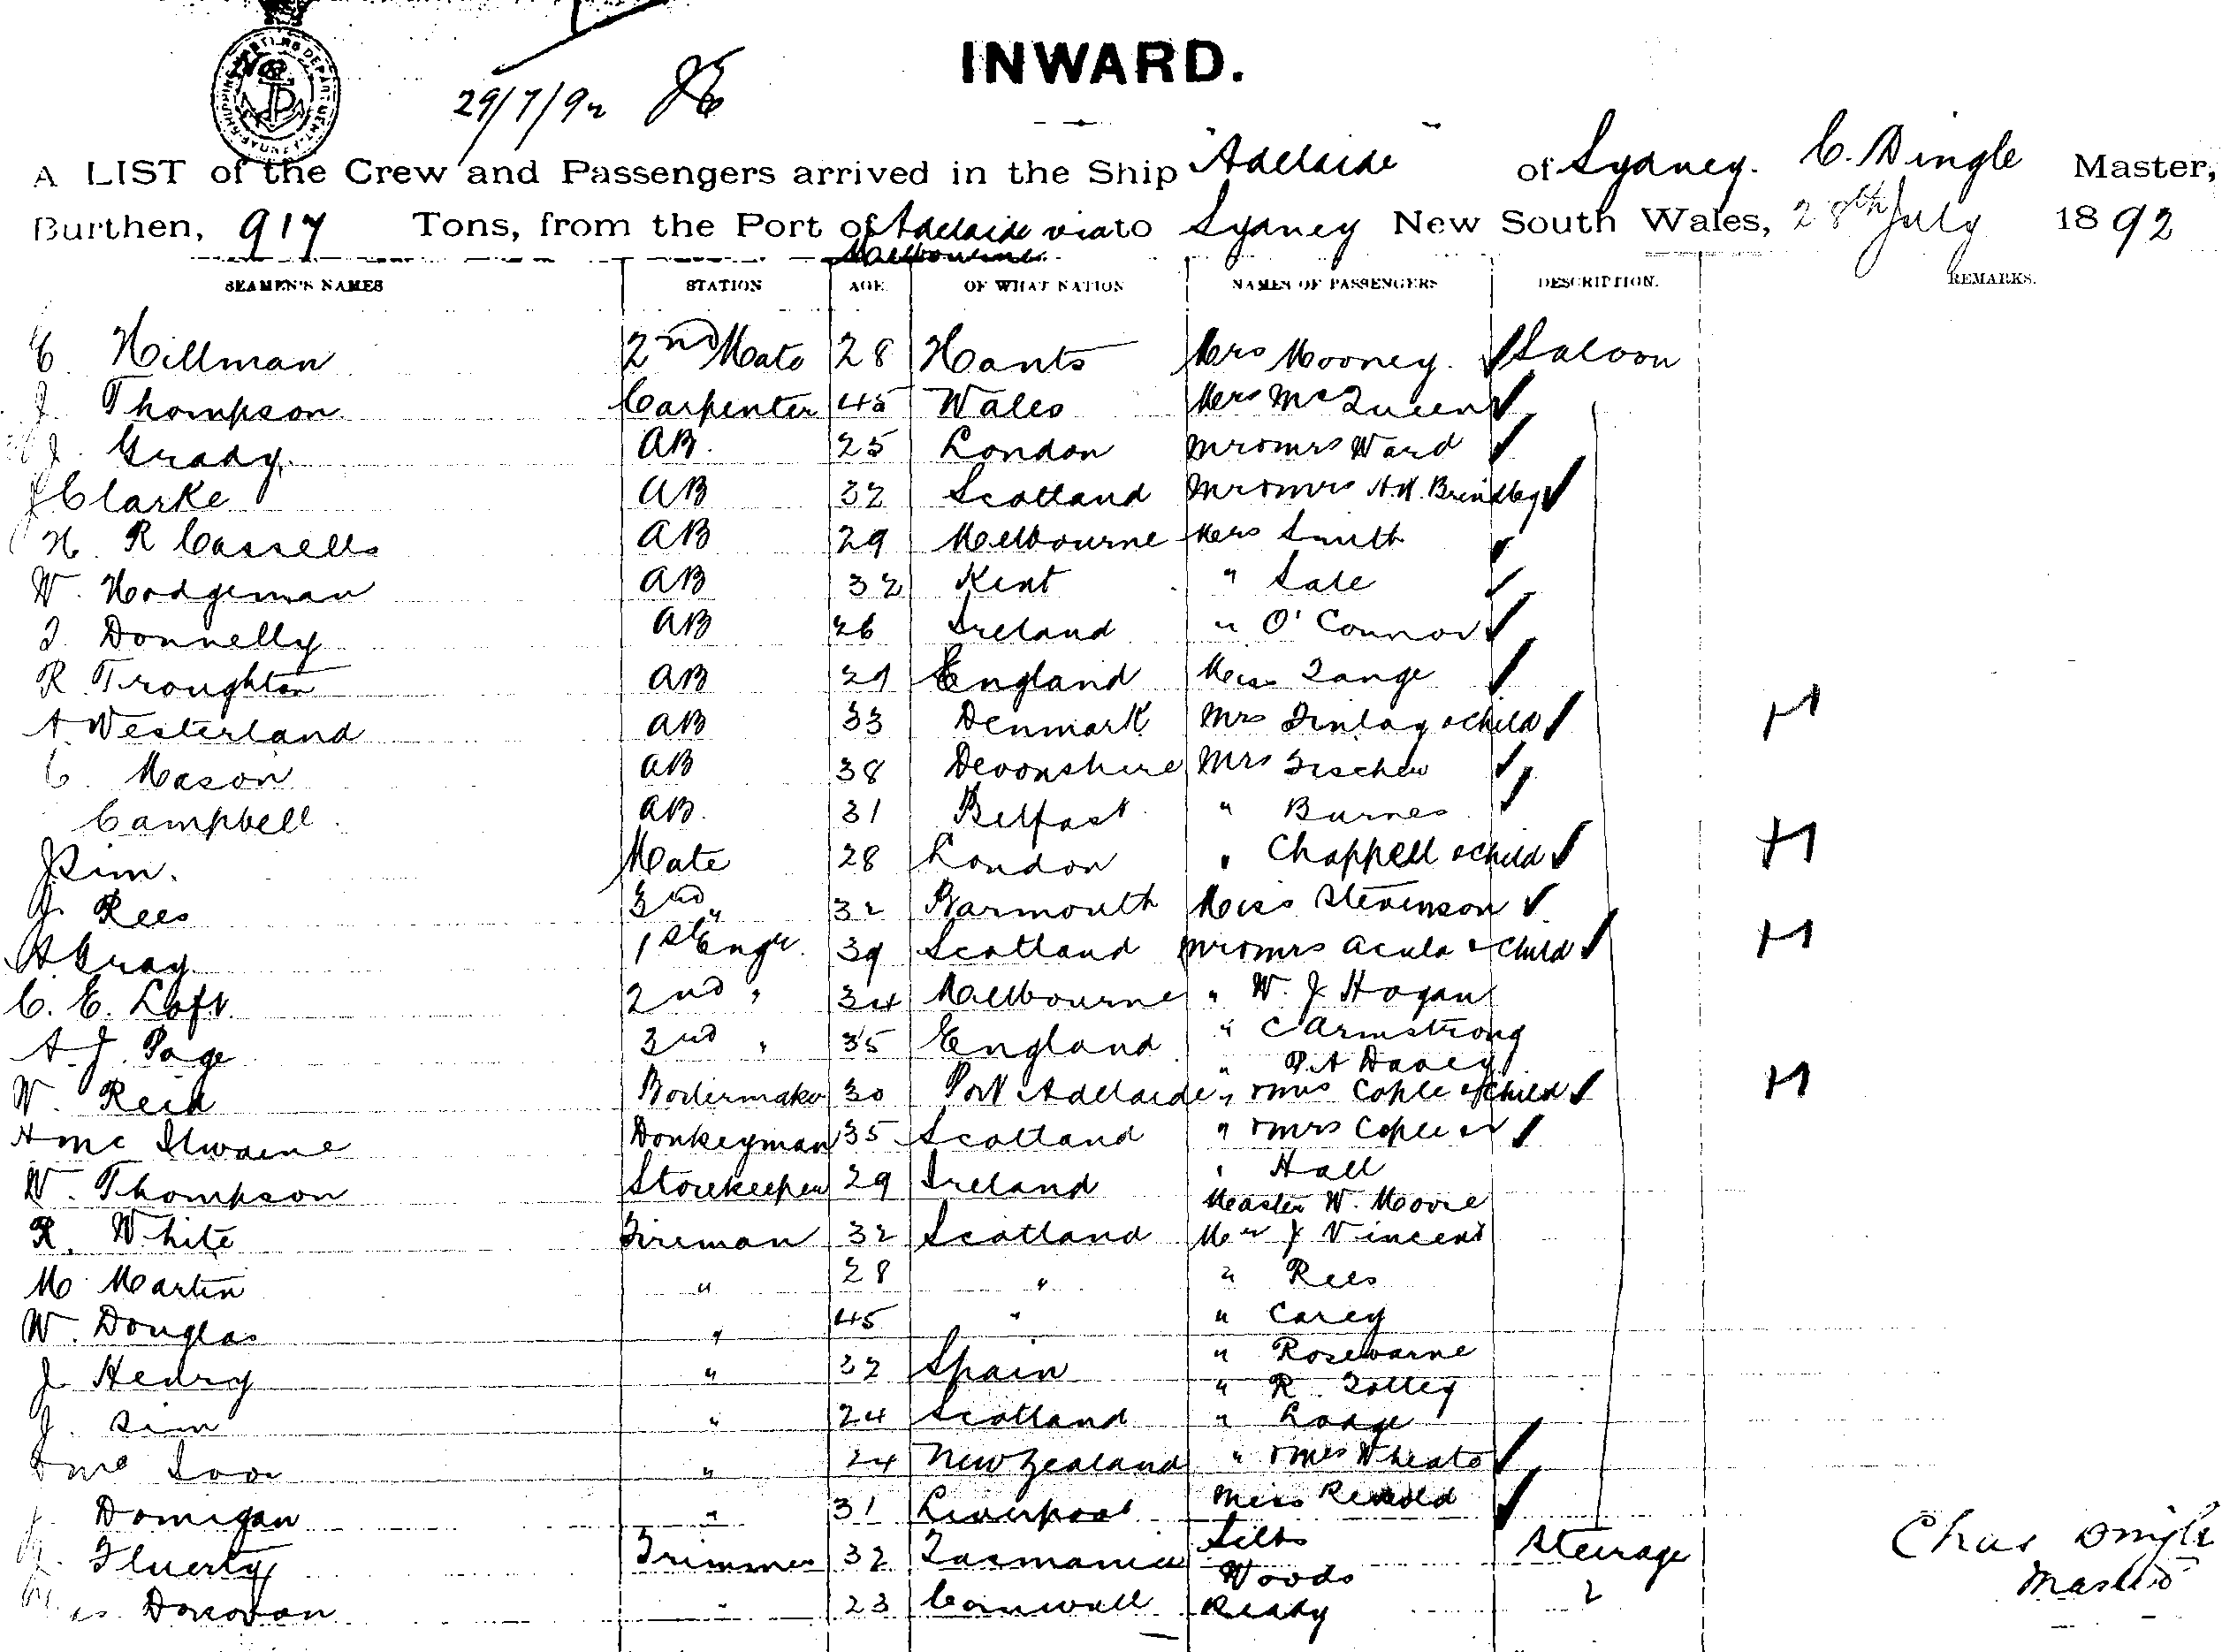 INWARD.
29/7/92
A LIST of the Crew and Passengers arrived in the Ship "Adelaide" of Sydney. C. Dingle Master,
Burthen, 917 Tons, from the Port of Adelaide via to Sydney New South Wales, 28th July 1892
Melbourne
SEAMEN'S NAMES STATION AGE OF WHAT NATION NAMES OF PASSENGERS DESCRIPTION. REMARKS.
E Hillman 2nd Mate 28 Hants Mrs Mooney. Saloon
J Thompson Carpenter 45 Wales Mrs McQueen
J. Grady. AB. 25 London Mr & Mrs Ward
J Clarke AB 32 Scotland Mr & Mrs H.W. Brindley
H. R Cassells AB 29 Melbourne Mrs Smith
W. Hodgeman AB 32 Kent " Sale
J. Donnelly AB 26 Ireland " O'Connor
R. Troughton AB 29 England Miss Lange
A. Westerland AB 33 Denmark Mrs Finlay & child H
C. Mason AB 38 Devonshire Mrs Fischer
Campbell AB. 31 Belfast " Burnes
J Sim. Mate 28 London " Chappell & child H
J. Rees 3rd " 32 Barmouth Miss Stevenson
A Gray 1st Engr. 39 Scotland Mr & Mrs Acula & child H
C. E. Loft. 2nd " 34 Melbourne " W. J Hogan
A. J. Page 3rd " 35 England " C Armstrong
" P. A Davey
W. Reid Boilermaker 30 Port Adelaide " & Mrs Cople & child H
H Mc Ilwaine Donkeyman 35 Scotland " & Mrs
W. Thompson Storekeeper 29 Ireland " Hall
Master W. Moore
R. White Fireman 32 Scotland Mr J Vincent
M. Martin " 28 " " Rees
W. Douglas " 45 " " Carey
" Rosewarne
J Henry " 32 Spain " R. Tolley
J. Sim " 24 Scotland " Lodge
" 24 New Zealand " & Mrs Wheato
J. Domigan " 31 Liverpool Miss
J. Fluerty Trimmer 32 Tasmania Silts Steerage
Woods
Donovan " 23 Cornwall Ready "
Chas Dingle
Master